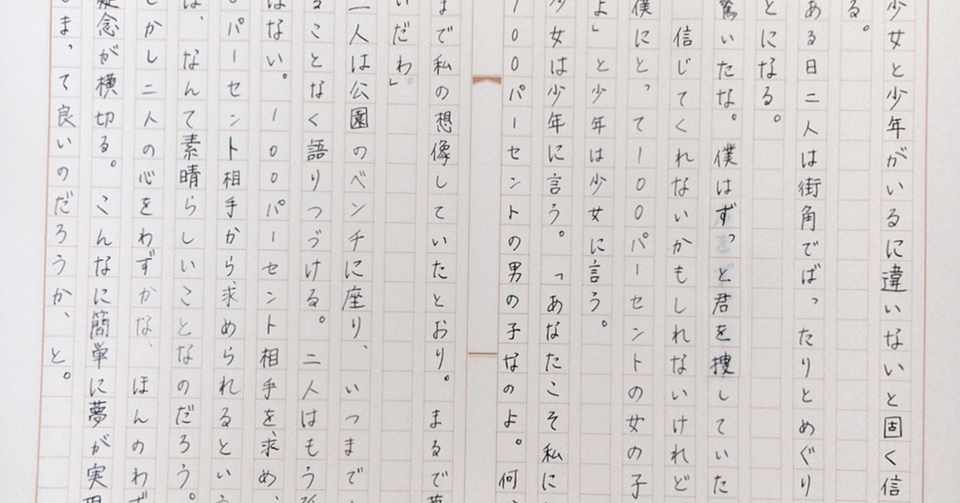 少女と少年がいるに違いないと固く信
る。
ある日二人は街角でばったりとめぐり
とになる。
驚いたな。僕はずっと君を捜していた
信じてくれないかもしれないけれど
僕にとって100パーセントの女の子
よ」と少年は少女に言う。
少女は少年に言う。「あなたこそ私に
100パーセントの男の子なのよ。何
まで私の想像していたとおり。まるで
いだわ」
二人は公園のベンチに座り、いつまで
ることなく語りつづける。二人はもう
はない。100パーセント相手を求め、
パーセント相手から求められるとい
は、なんて素晴らしいことなのだろう。
しかし二人の心をわずかな、ほんのわず
疑念が横切る。こんなに簡単に夢が実現
しまって良いのだろうか、と。